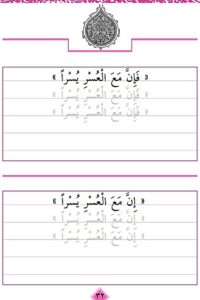 ﴿ فَإِنَّ مَعَ الْعُسْرِ يُسْراً ﴾
﴿ فَإِنَّ مَعَ الْعُسْرِ يُسْراً ﴾
﴿ فَإِنَّ مَعَ الْعُسْرِ يُسْراً ﴾
﴿ إِنَّ مَعَ الْعُسْرِ يُسْراً ﴾
﴿ إِنَّ مَعَ الْعُسْرِ يُسْراً ﴾
﴿ إِنَّ مَعَ الْعُسْرِ يُسْراً ﴾
٣٢